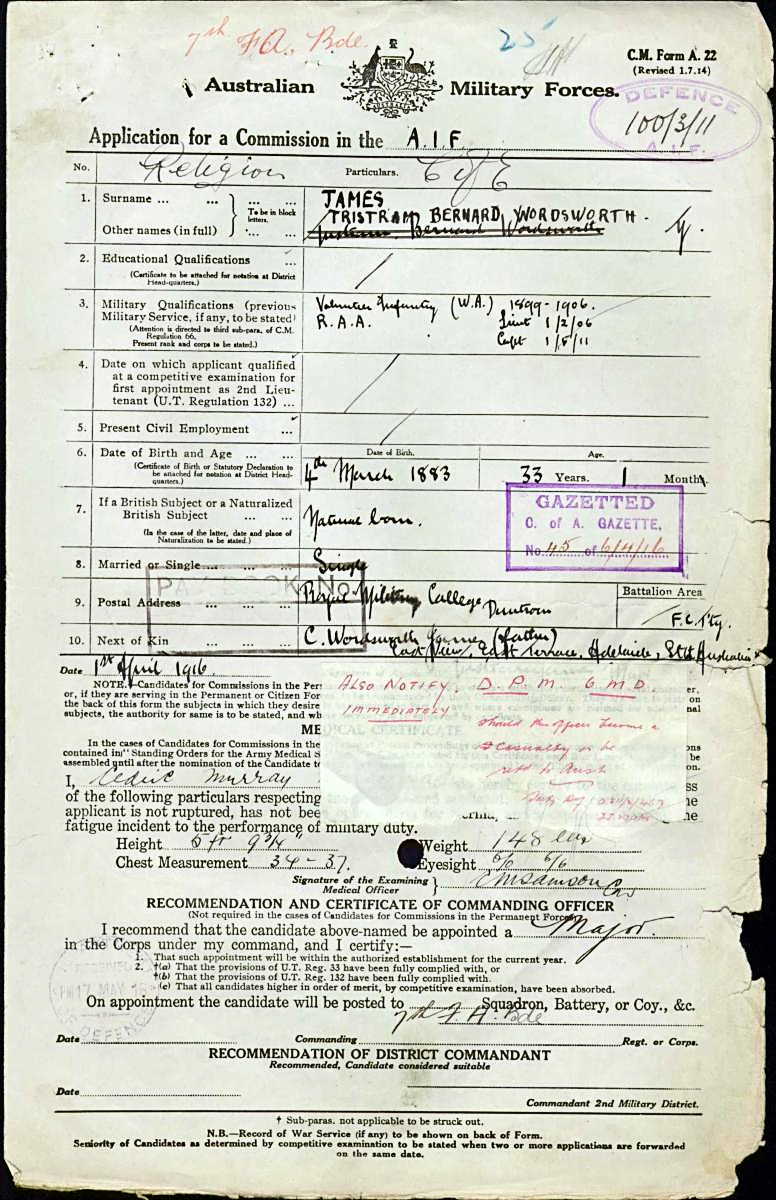 7th F.A. Bde.
25
C.M. Form A. 22
(Revised 1.7.14)
Australian Military Forces.
DEFENCE
100/3/11
A.I.F.
Application for a Commission in the A.I.F.
Religion C of E
No. Particulars.
1. Surname ... ... ... ... JAMES
To be in block letters.
Other names (in full) ... ... TRISTRAM BERNARD WORDSWORTH.
Bernard Wordsworth
2. Educational Qualifications ...
(Certificate to be attached for notation at District
Head-quarters.)
3. Military Qualifications (previous
Military Service, if any, to be stated)
(Attention is directed to third sub-para. of C.M.
Regulation 66.
Present rank and corps to be stated.)
Volunteer Infantry (W.A.) 1899-1906.
R.A.A. Lieut 1/2/06
Capt 1/8/11
4. Date on which applicant qualified
at a competitive examination for
first appointment as 2nd Lieu-
tenant (U.T. Regulation 132) ...
5. Present Civil Employment ...
6. Date of Birth and Age ... ...
(Certificate of Birth or Statutory Declaration to
be attached for notation at District Head-
quarters.)
Date of Birth. Age.
4th March 1883 33 Years. 1 Month
7. If a British Subject or a Naturalized
British Subject ... ...
(In the case of the latter, date and place of
Naturalization to be stated.)
Natural born.
GAZETTED
C. of A. GAZETTE,
No. 45 of 6/4/16
8. Married or Single ... ... ... Single
PAY BOOK No.
9. Postal Address ... ... ... Royal Military College Duntroon
Battalion Area
10. Next of Kin ... ... ... C. Wordsworth James (father)
East View, East Terrace, Adelaide, Sth Australia
Date 1st April 1916.
NOTE.—Candidates for Commissions in the Per
or, if they are serving in the Permanent or Citizen For
the back of this form the subjects in which they desire
subjects, the authority for same is to be stated, and wh
ALSO NOTIFY. D.P.M. 6.M.D.
IMMEDIATELY
should the officer become a
casualty or be
retd to Aust
ME
In the cases of Candidates for Commissions in the
contained in "Standing Orders for the Army Medical S
assembled until after the nomination of the Candidate to
I, Cedric Murray
of the following particulars respecting
applicant is not ruptured, has not bee
fatigue incident to the performance of military duty.
Height 5 ft 9 3/4" Weight 148 lbs
Chest Measurement 34-37. Eyesight 6/6 6/6
Signature of the Examining
Medical Officer
RECOMMENDATION AND CERTIFICATE OF COMMANDING OFFICER
(Not required in the cases of Candidates for Commissions in the Permanent Forces)
I recommend that the candidate above-named be appointed a Major.
in the Corps under my command, and I certify:—
1. That such appointment will be within the authorized establishment for the current year.
2. †(a) That the provisions of U.T. Reg. 33 have been fully complied with, or
†(b) That the provisions of U.T. Reg. 132 have been fully complied with.
(c) That all candidates higher in order of merit, by competitive examination, have been absorbed.
17 MAY 16
DEFENCE
On appointment the candidate will be posted to Squadron, Battery, or Coy., &c.
7th F.A. Bde
Date Commanding Regt. or Corps.
RECOMMENDATION OF DISTRICT COMMANDANT
Recommended, Candidate considered suitable
Date
Commandant 2nd Military District.
† Sub-paras. not applicable to be struck out.
N.B.—Record of War Service (if any) to be shown on back of Form.
Seniority of Candidates as determined by competitive examination to be stated when two or more applications are forwarded
on the same date.